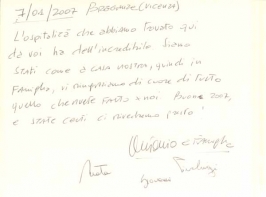 7/01/2007 BREGANZE (VICENZA)
L'ospitalità che abbiamo trovato qui
da voi ha dell'incredibile. Siamo
stati come a casa nostra, quindi in
famiglia, vi ringraziamo di cuore di tutto
quello che avete fatto a noi. Buon 2007,
e state certi ci rivedremo presto
Antonio e Famiglia